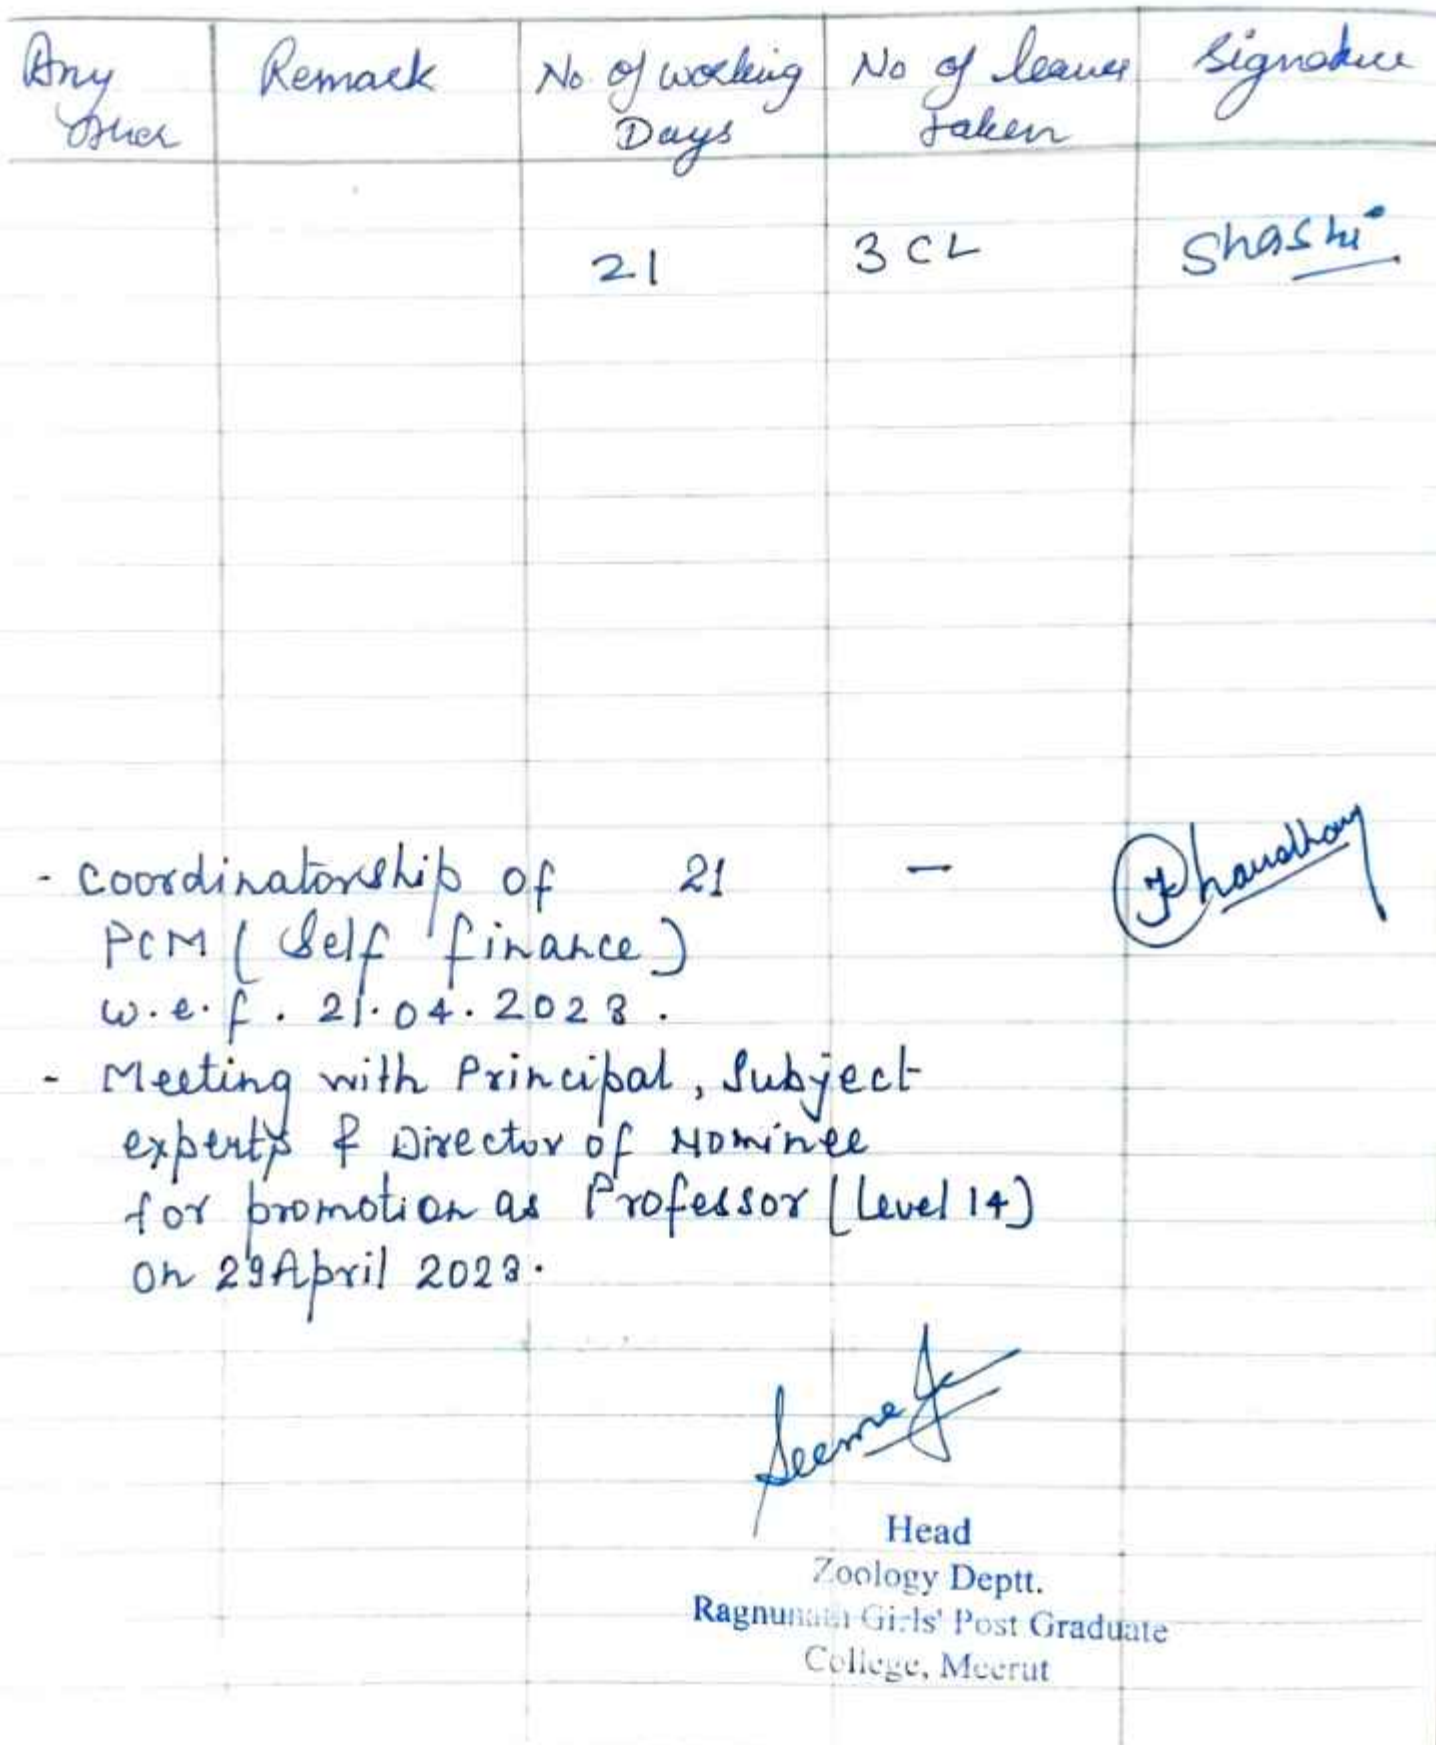 Any Other | Remark | No. of working Days | No of leaves taken | Signature
21 | 3 CL | Shashi
- Coordinatorship of 21 — Chaudhary
PCM (Self finance)
w.e.f. 21.04.2023.
- Meeting with Principal, Subject
experts & Director of Nominee
for promotion as Professor (Level 14)
on 29 April 2023.
Seema
Head
Zoology Deptt.
Ragnunath Girls' Post Graduate
College, Meerut